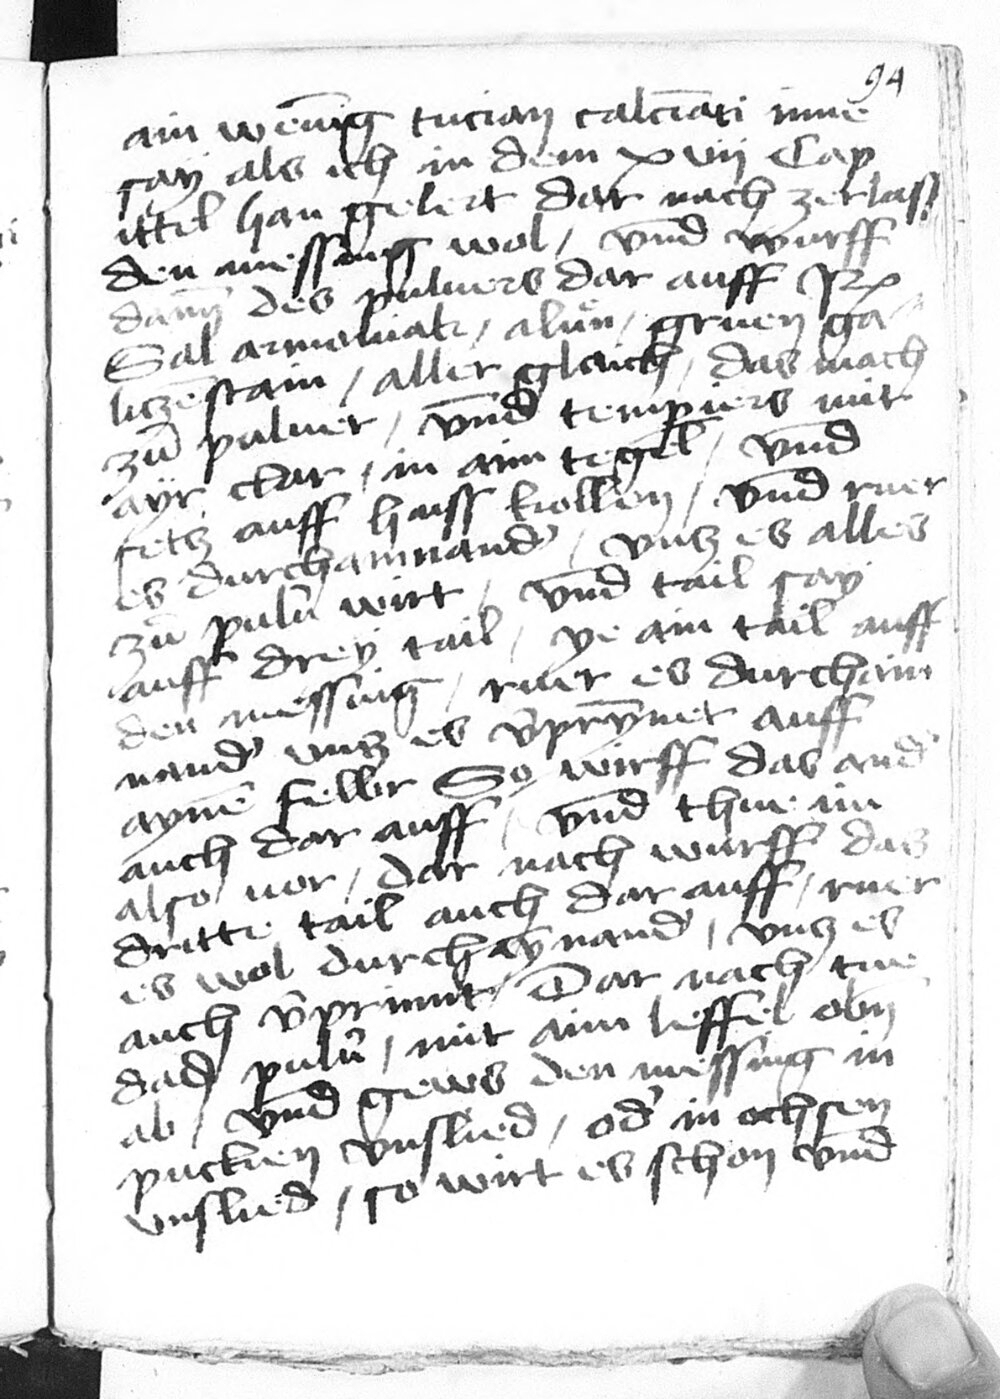 94
ain wēnig tucian calcīati inne
say als ich in dem xviij Cap
ittel han gelert dar nach zerlasß
den messing wol / vnd wurff
dann des puluers dar auff Rx
Sal armoniak / aluen / gruen ga
liczēstain / aller gleich / das mach
zū puluer / vnd tempiers mit
ayr clar / in aim tegel / vnd
setz auff haiss kollen / vnd ruer
es durchainnand' / vntz es alles
zū pulu' wirt / vnd tail say
auff drey tail / ye ain tail auff
den messing / ruer es durchain
nand' vntz es v'prynnet auff
aynē feller So wirff das and'
auch dar auff / vnd thue im
also vor / dar nach wurff das
dritte tail auch dar auff / ruer
es wol durchaynand' / vntz es
auch v'prinnt / Dar nach tue
das pulu' / mit aim leffel obn
ab / vnd gews den messing in
pucken vnslied / od' in ochsen
vnslied / so wirt es schon vnd